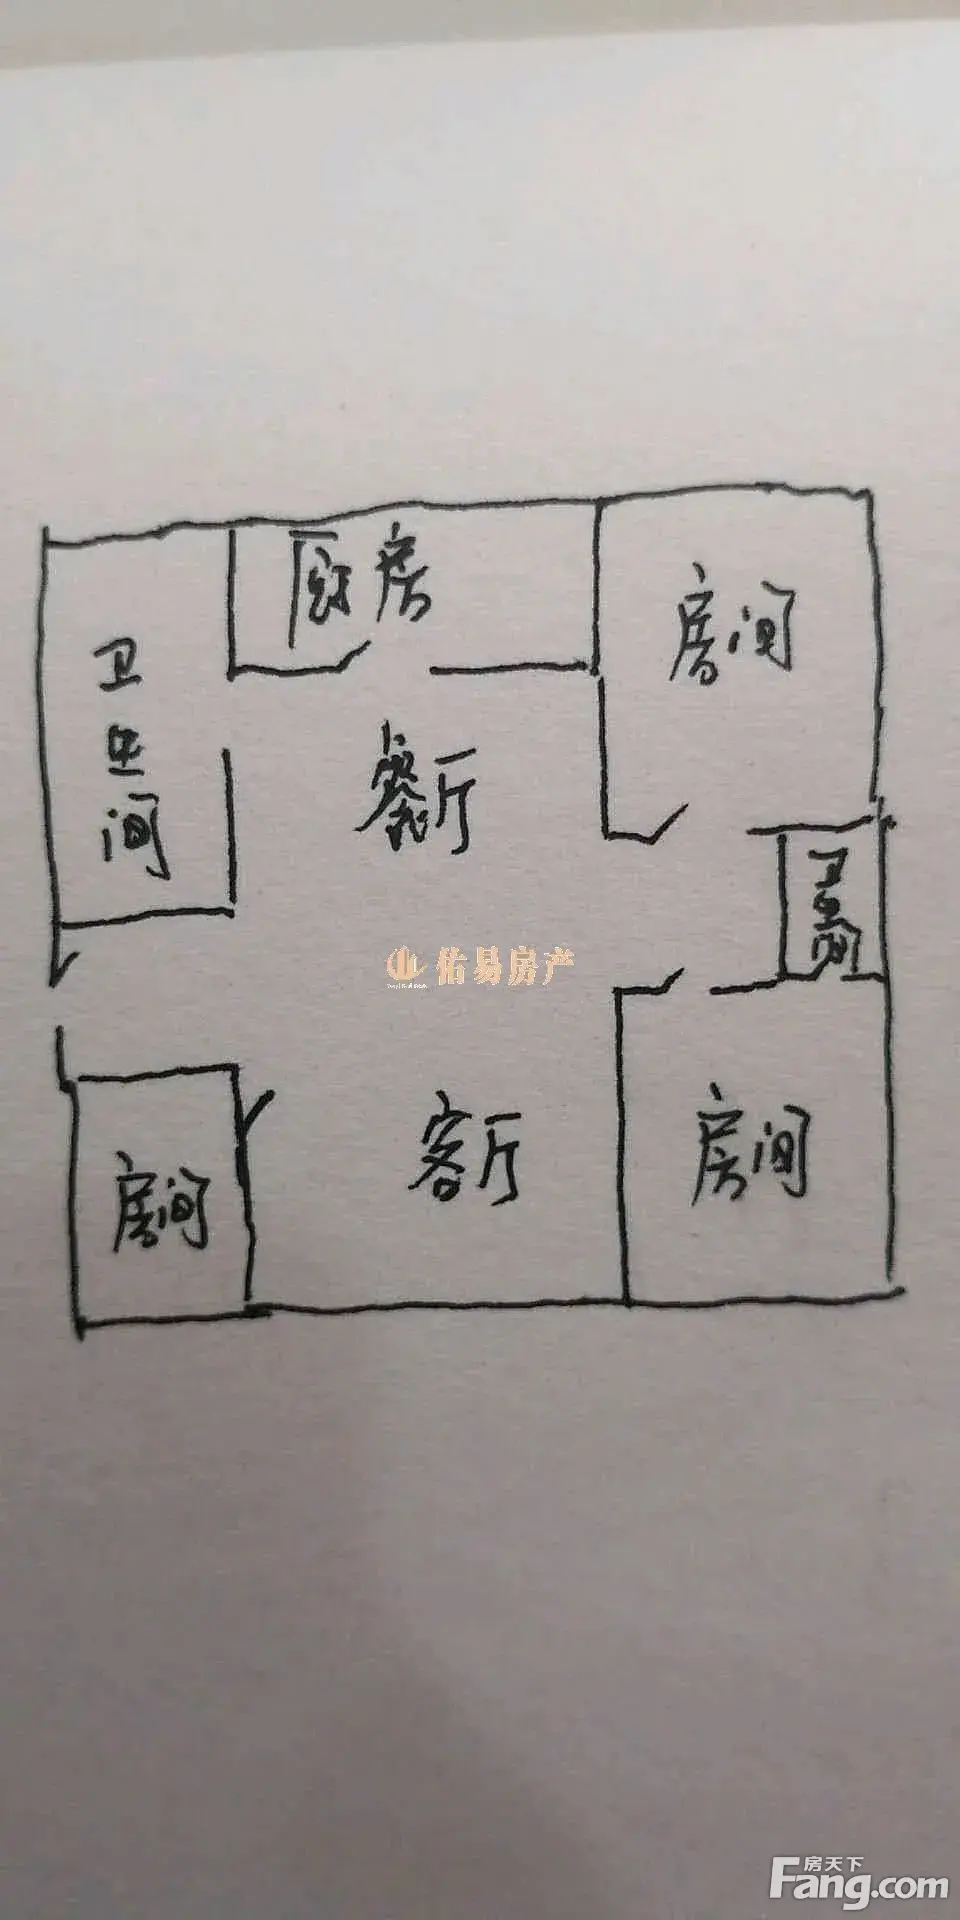 厨房
房间
卫
生
间
餐厅
卫
生
间
佑易房产
客厅
房间
房间
房天下
Fang.com